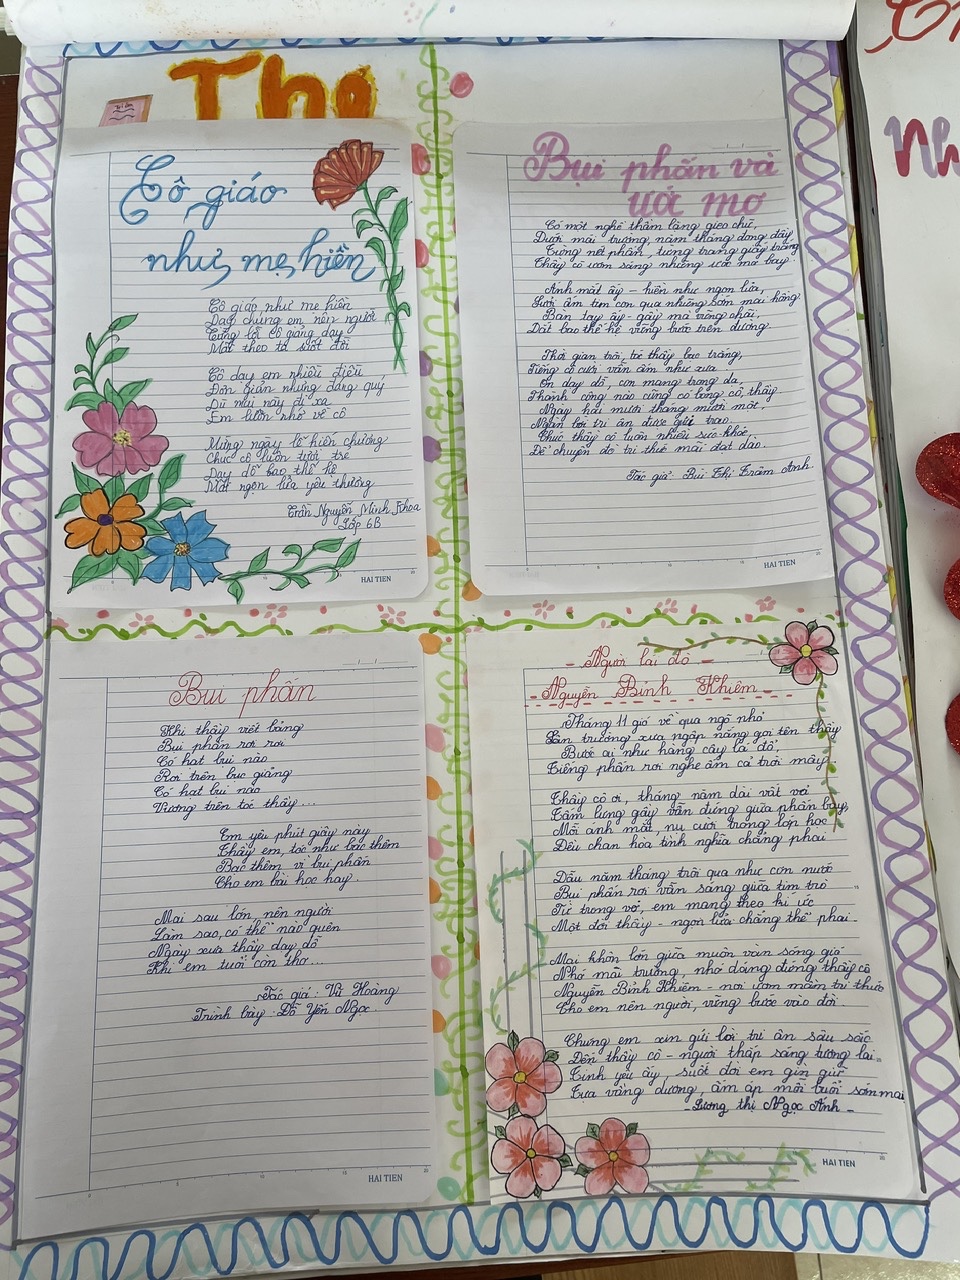 Thơ
Tri ân
Cô giáo
như mẹ hiền
Cô giáo như mẹ hiền
Dạy chúng em nên người
Từng lời cô giảng dạy
Mãi theo ta suốt đời
Cô dạy em nhiều điều
Đơn giản nhưng đáng quý
Dù mai này đi xa
Em luôn nhớ về cô
Mừng ngày lễ hiến chương
Chúc cô luôn tươi trẻ
Dạy dỗ bao thế hệ
Mãi ngọn lửa yêu thương
Trần Nguyễn Minh Khoa
Lớp 6B
HAI TIEN
Bụi phấn và
ước mơ
Có một nghề thầm lặng gieo chữ,
Dưới mái trường, năm tháng đong đầy
Từng nét phấn, từng trang giấy trắng
Thầy cô ươm sáng những ước mơ bay.
Ánh mắt ấy - hiền như ngọn lửa,
Sưởi ấm tim con qua những sớm mai hồng
Bàn tay ấy - gầy mà vững chãi,
Dắt bao thế hệ vững bước trên đường
Thời gian trôi, tóc thầy bạc trắng,
Tiếng cô cười vẫn ấm như xưa
Ơn dạy dỗ, con mang trong dạ,
Thành công nào cũng có bóng cô, thầy
Ngày hai mươi tháng mười một,
Ngàn lời tri ân được gửi trao
Chúc thầy cô luôn nhiều sức khỏe
Để chuyến đò tri thức mãi dạt dào.
Tác giả: Bùi Thị Trâm Anh
HAI TIEN
Bụi phấn
Khi thầy viết bảng
Bụi phấn rơi rơi
Có hạt bụi nào
Rơi trên bục giảng
Có hạt bụi nào
Vương trên tóc thầy...
Em yêu phút giây này
Thầy em, tóc như bạc thêm
Bạc thêm vì bụi phấn
Cho em bài học hay.
Mai sau lớn, nên người
Làm sao, có thể nào quên
Ngày xưa thầy dạy dỗ
Khi em tuổi còn thơ...
Tác giả: Vũ Hoàng
Trình bày: Đỗ Yến Ngọc
HAI TIEN
- Người lái đò -
- Nguyễn Bỉnh Khiêm -
Tháng 11 gió về qua ngõ nhỏ
Sân trường xưa ngập nắng gọi tên thầy
Bước ai như hàng cây lá đổ,
Tiếng phấn rơi nghe ấm cả trời mây.
Thầy cô ơi, tháng năm dài vất vả
Tấm lưng gầy vẫn đứng giữa phấn bay,
Mỗi ánh mắt, nụ cười trong lớp học
Đều chan hòa tình nghĩa chẳng phai
Dẫu năm tháng trôi qua như cơn nước
Bụi phấn rơi vẫn sáng giữa tim trò
Từ trang vở, em mang theo kí ức
Một đời thầy - ngọn lửa chẳng thể phai
Mai khôn lớn giữa muôn vàn sóng gió
Nhớ mái trường, nhớ dáng đứng thầy cô
Nguyễn Bỉnh Khiêm - nơi ươm mầm tri thức
Cho em nên người, vững bước vào đời
Chúng em xin gửi lời tri ân sâu sắc
Đến thầy cô - người thắp sáng tương lai
Tình yêu ấy, suốt đời em gìn giữ
Tựa vầng dương, ấm áp mỗi buổi sớm mai
- Lương thị Ngọc Ánh -
HAI TIEN